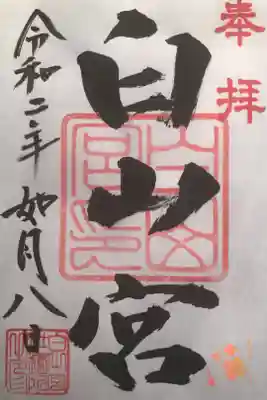 奉拝
白山宮
令和二年 如月八日